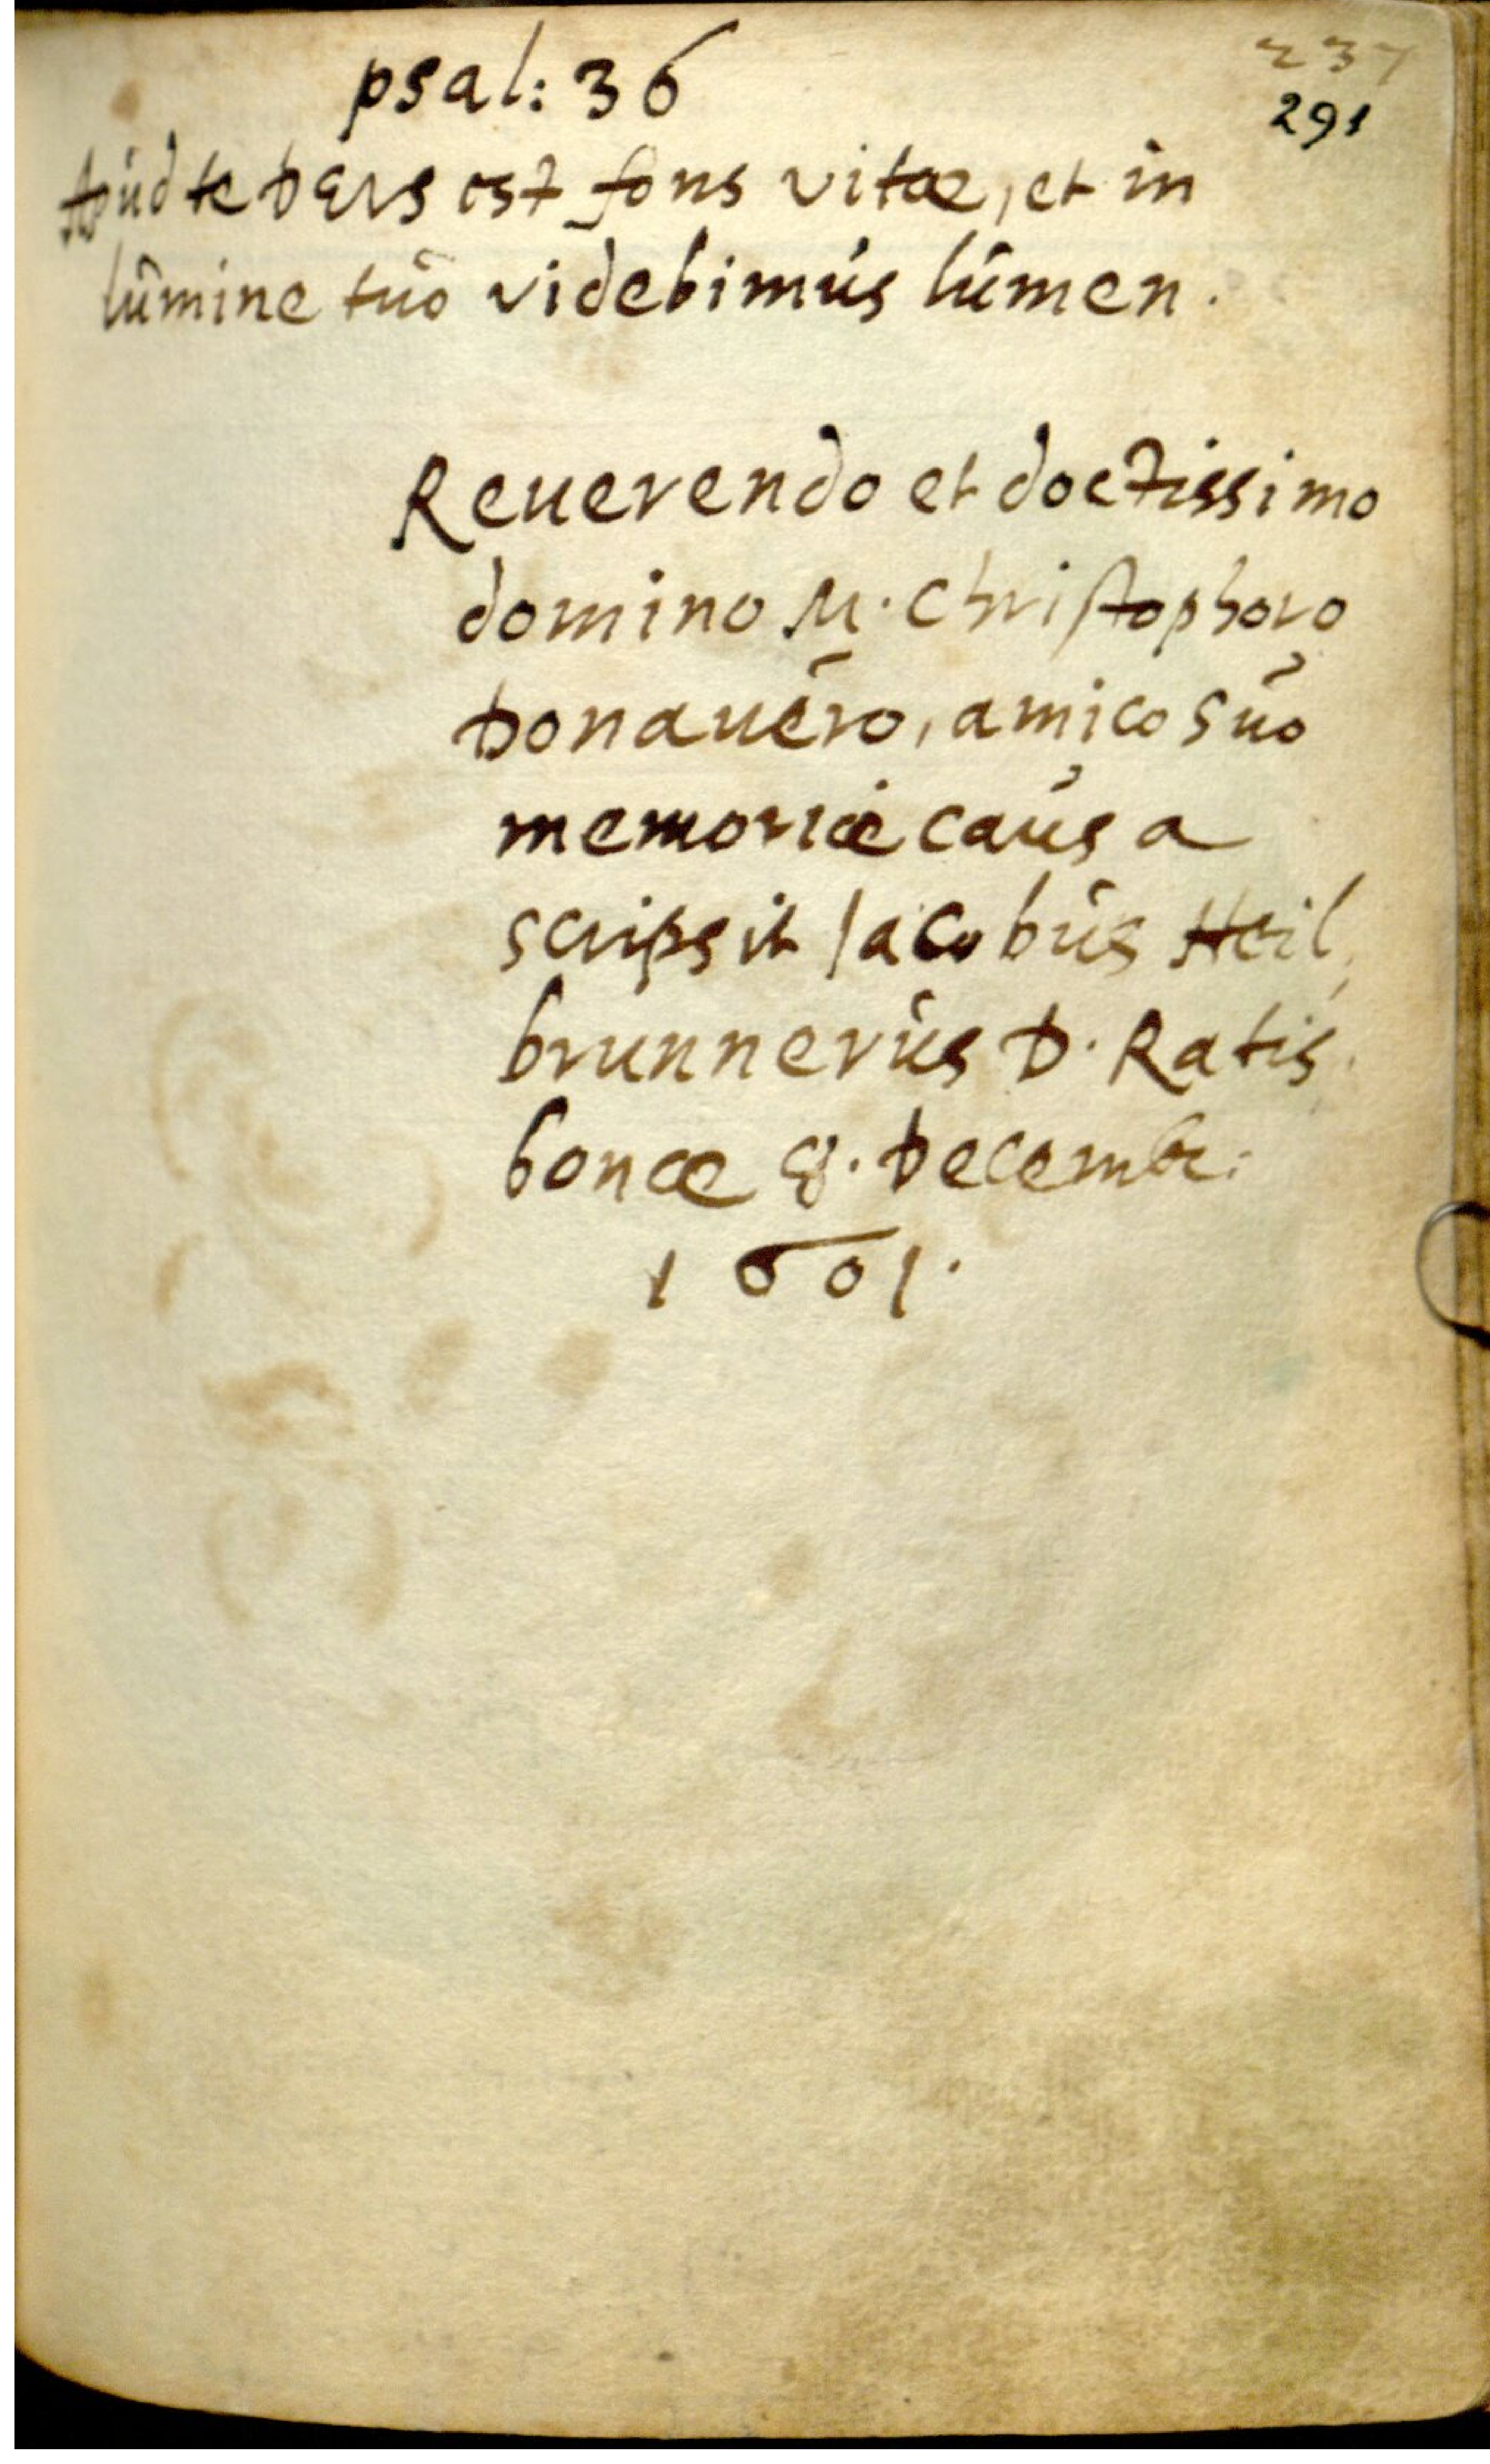 psal: 36
237
291
Apud te Deus est fons vitae, et in
lumine tuo videbimus lumen.
Reuerendo et doctissimo
domino M. Christophoro
Donauero, amico suo
memoriae causa
scripsit Iacobus Heil,
brunnerus D. Ratis,
bonae 8. Decembr:
1601.